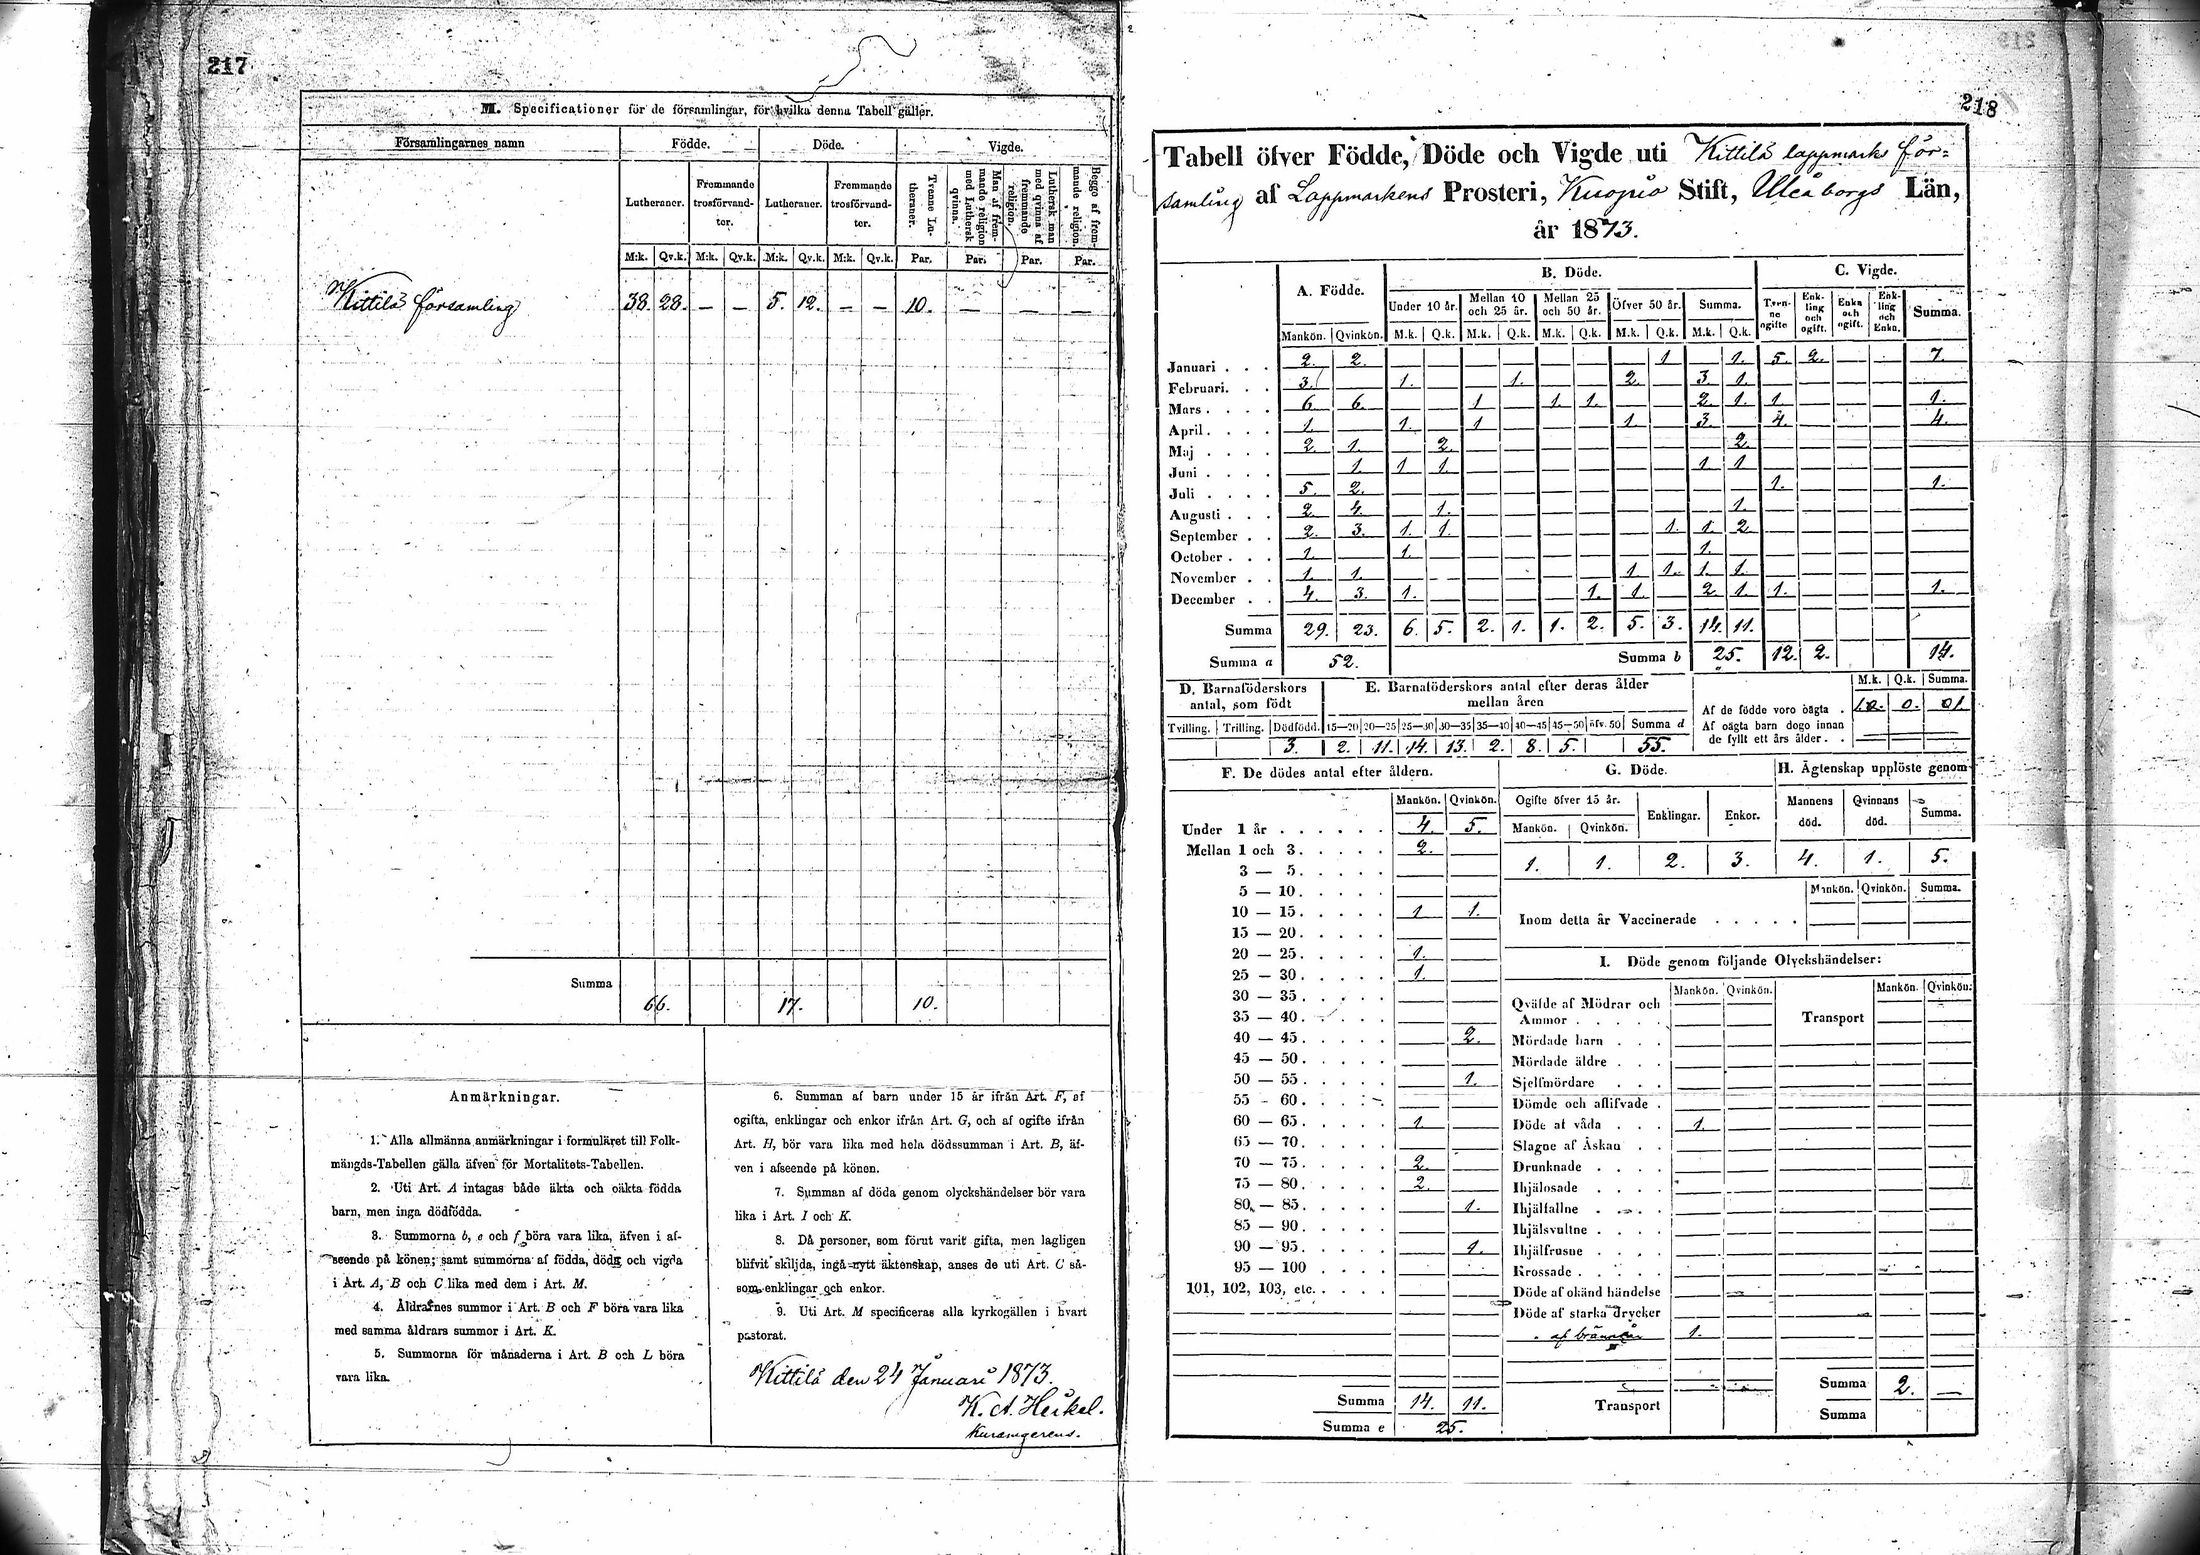 217
M. Specificationer för de församlingar, för hvilka denna Tabell gäller.
Församlingarnes namn
Födde.
Döde.
Vigde.
Lutheraner.
Fremmande trosförvandter.
Lutheraner.
Fremmande trosförvandter.
Tvenne Lutheraner.
Man af fremmande religion med Luthersk qvinna.
Luthersk man med qvinna af fremmande religion.
Begge af fremmande religion.
M:k. Qv.k. M:k. Qv.k. M:k. Qv.k. M:k. Qv.k. Par. Par. Par. Par.
Kittilä församling 38. 28. — — 5. 12. — — 10. — — —
Summa 66. 17. 10.
Anmärkningar.
1. Alla allmänna anmärkningar i formuläret till Folk-
mängds-Tabellen gälla äfven för Mortalitets-Tabellen.
2. Uti Art. A intagas både äkta och oäkta födda
barn, men inga dödfödda.
3. Summorna b, e och f böra vara lika, äfven i af-
seende på könen; samt summorna af födda, döda och vigda
i Art. A, B och C lika med dem i Art. M.
4. Åldrarnes summor i Art. B och F böra vara lika
med samma åldrars summor i Art. K.
5. Summorna för månaderna i Art. B och L böra
vara lika.
6. Summan af barn under 15 år ifrån Art. F, af
ogifta, enklingar och enkor ifrån Art. G, och af ogifte ifrån
Art. H, bör vara lika med hela dödssumman i Art. B, äf-
ven i afseende på könen.
7. Summan af döda genom olyckshändelser bör vara
lika i Art. I och K.
8. Då personer, som förut varit gifta, men lagligen
blifvit skiljda, ingå nytt äktenskap, anses de uti Art. C så-
som enklingar och enkor.
9. Uti Art. M specificeras alla kyrkogällen i hvart
pastorat.
Kittilä den 24 Januari 1873.
K. A. Heikel.
218
Tabell öfver Födde, Döde och Vigde uti Kittilä lappmarks för-
samling af Lappmarkens Prosteri, Kuopio Stift, Uleåborgs Län,
år 1873.
A. Födde.
B. Döde.
C. Vigde.
Under 10 år. Mellan 10 och 25 år. Mellan 25 och 50 år. Öfver 50 år. Summa.
Tvenne ogifte Enkling och ogift. Enka och ogift. Enkling och Enka. Summa.
Mankön. Qvinkön. M.k. Q.k. M.k. Q.k. M.k. Q.k. M.k. Q.k. M.k. Q.k.
Januari . . . 2. 2. — — — — — — — 1 — 1. 5. 2. — — 7.
Februari. . . 3. — 1. — — 1. — — 2. — 3. 1. — — — — —
Mars . . . . 6. 6. — — 1 — 1. 1. — — 2. 1. 1. — — — 1.
April. . . . 1. — 1. — 1 — — — 1. — 3. — 4. — — — 4.
Maj . . . . 2. 1. — 2. — — — — — — — 2. — — — — —
Juni . . . . — 1. 1 1. — — — — — — 1 1 — — — — —
Juli . . . . 5. 2. — — — — — — — — — — 1. — — — 1.
Augusti . . . 2. 4. — 1. — — — — — — — 1. — — — — —
September . . 2. 3. 1. 1. — — — — — 1. 1. 2. — — — — —
October . . . 1. — 1. — — — — — — — 1. — — — — — —
November . . 1. 1. — — — — — — 1 1. 1. 1. — — — — —
December . . 4. 3. 1. — — — — 1. 1. — 2. 1. 1. — — — 1.
Summa 29. 23. 6. 5. 2. 1. 1. 2. 5. 3. 14. 11.
Summa a 52. Summa b 25. 12. 2. 14.
D. Barnaföderskors antal, som födt
E. Barnaföderskors antal efter deras ålder mellan åren
M.k. Q.k. Summa.
Af de födde voro oägta .
Af oägta barn dogo innan de fyllt ett års ålder . .
Tvilling. Trilling. Dödfödd. 15—20 20—25 25—30 30—35 35—40 40—45 45—50 öfv. 50 Summa d
3. 2. 11. 14. 13. 2. 8. 5. 55.
F. De dödes antal efter åldern.
Mankön. Qvinkön.
Under 1 år . . . . . . 4. 5.
Mellan 1 och 3. . . . . 2. —
3 — 5. . . . .
5 — 10. . . . .
10 — 15. . . . . 1 1.
15 — 20. . . . .
20 — 25. . . . . 1. —
25 — 30. . . . . 1. —
30 — 35. . . . .
35 — 40. . . . .
40 — 45. . . . . — 2.
45 — 50. . . . .
50 — 55. . . . . — 1.
55 — 60. . . . .
60 — 65. . . . . 1 —
65 — 70. . . . .
70 — 75. . . . . 2. —
75 — 80. . . . . 2. —
80 — 85. . . . . — 1.
85 — 90. . . . .
90 — 95. . . . . — 1.
95 — 100 . . . .
101, 102, 103, etc. . . . .
Summa 14. 11.
Summa e 25.
G. Döde.
Ogifte öfver 15 år. Enklingar. Enkor.
Mankön. Qvinkön.
1. 1. 2. 3.
H. Ägtenskap upplöste genom
Mannens död. Qvinnans död. Summa.
4. 1. 5.
Mankön. Qvinkön. Summa.
Inom detta år Vaccinerade . . . . .
I. Döde genom följande Olyckshändelser:
Mankön. Qvinkön. Mankön. Qvinkön.
Qväfde af Mödrar och
Ammor . . . . . Transport
Mördade barn . . .
Mördade äldre . . .
Sjelfmördare . . .
Dömde och aflifvade .
Döde af våda . . . 1.
Slagne af Åskan . .
Drunknade . . . .
Ihjälosade . . . .
Ihjälfallne . . . .
Ihjälsvultne . . . .
Ihjälfrusne . . . .
Krossade . . . . .
Döde af okänd händelse
Döde af starka drycker
1.
Summa 2. —
Transport Summa